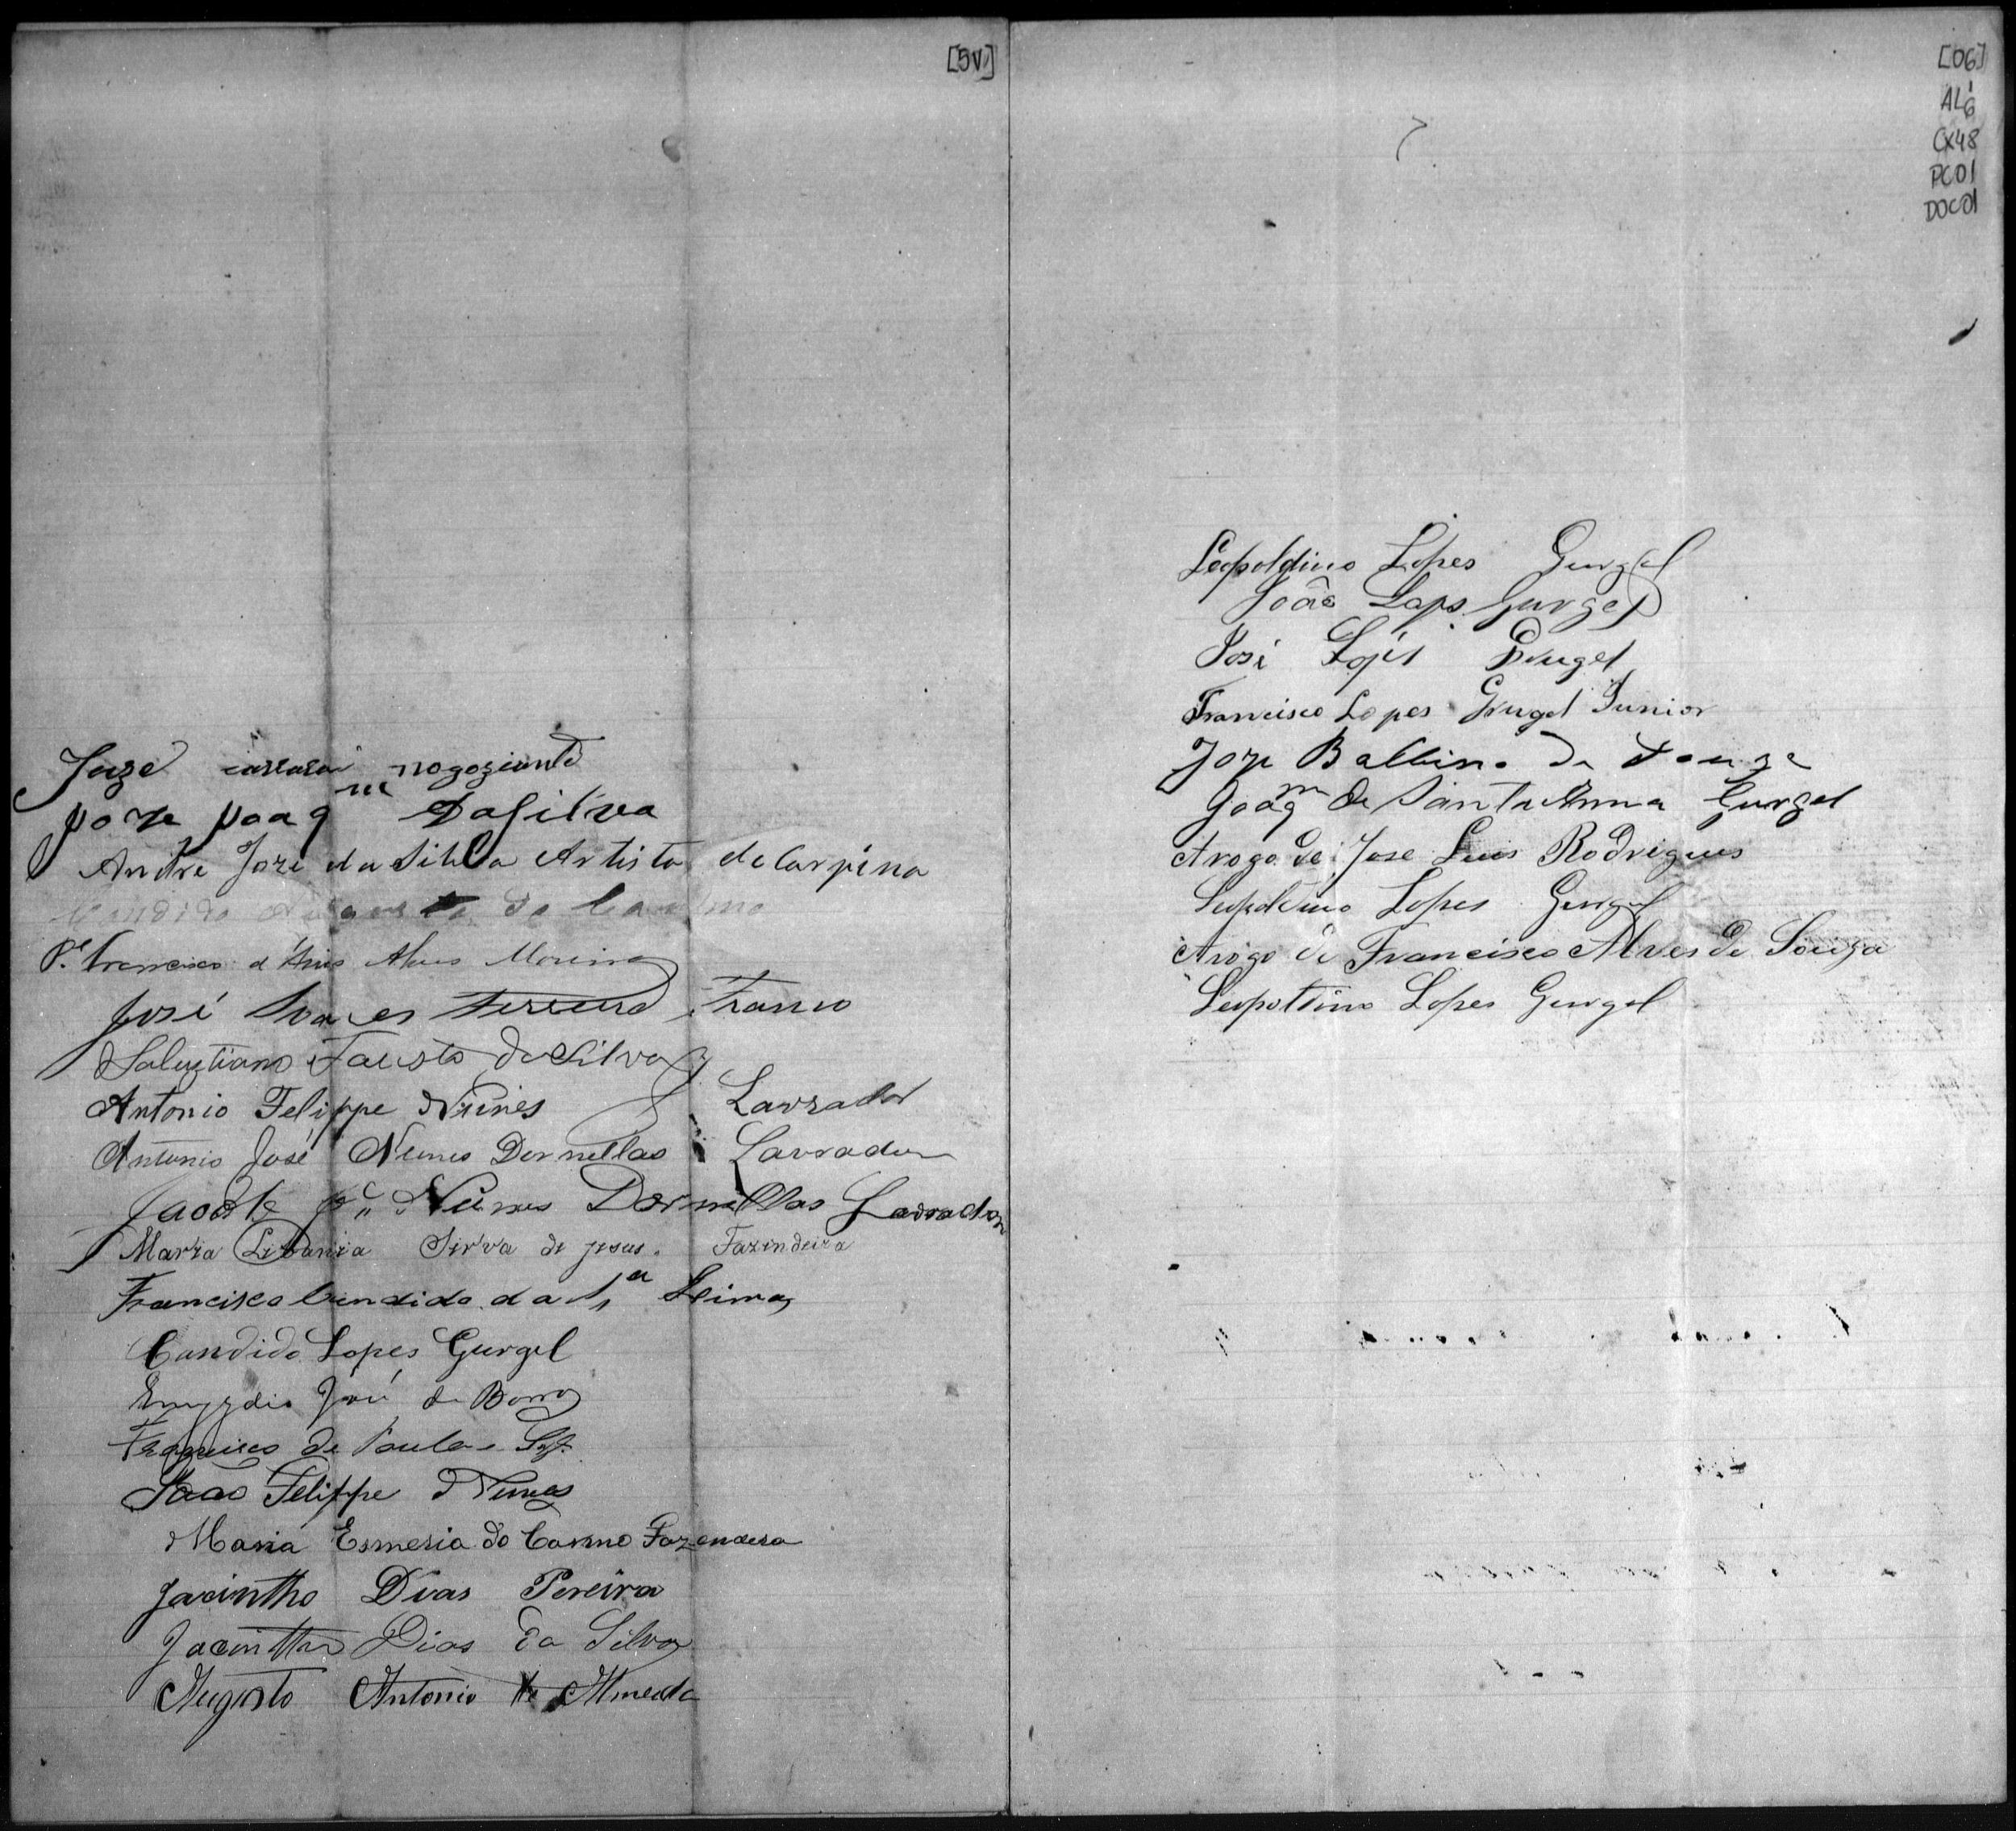 [5V]
Joze nogozianto
Joze Joaqm Dasilva
Andre Joze da Silva Artista de Carpina
Candido Augusto do Carmo
Pe. Francisco d'Assis Alves Moreira
José Soares Terceiro Franco
Salustiano Fausto da Silva
Antonio Felippe Nunes Lavrador
Antonio José Nunes Dornellas Lavrador
Nunes Dornellas Lavrador
Maria Libania Sirva de jesus. Fazindeira
Francisco Candido da Sa Lima
Candido Lopes Gurgel
Emygdio José de Barros
Francisco de Paula
João Felippe Nunes
Maria Esmeria do Carmo Fazendera
Jacintho Dias Pereira
Jacintho Dias da Silva
Augusto Antonio de Almeida
[06]
AL6
CX48
PC01
DOC01
Leopoldino Lopes Gurgel
João Lops Gurgel
José Lopes Gurgel
Francisco Lopes Gurgel Junior
Joze Balbino de Souza
Joaqm de Santa Anna Gurgel
Arogo de Jose Luis Rodrigues
Leopoldino Lopes Gurgel
Arogo de Francisco Alves de Souza
Leopoldino Lopes Gurgel